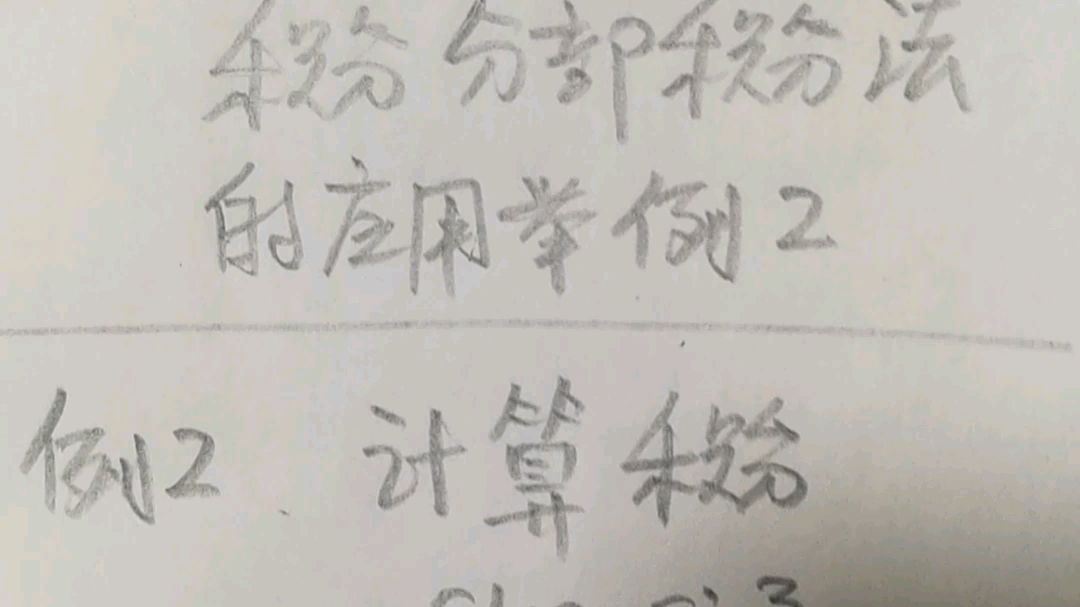 积分分部积分法
的应用举例2
例2. 计算积分